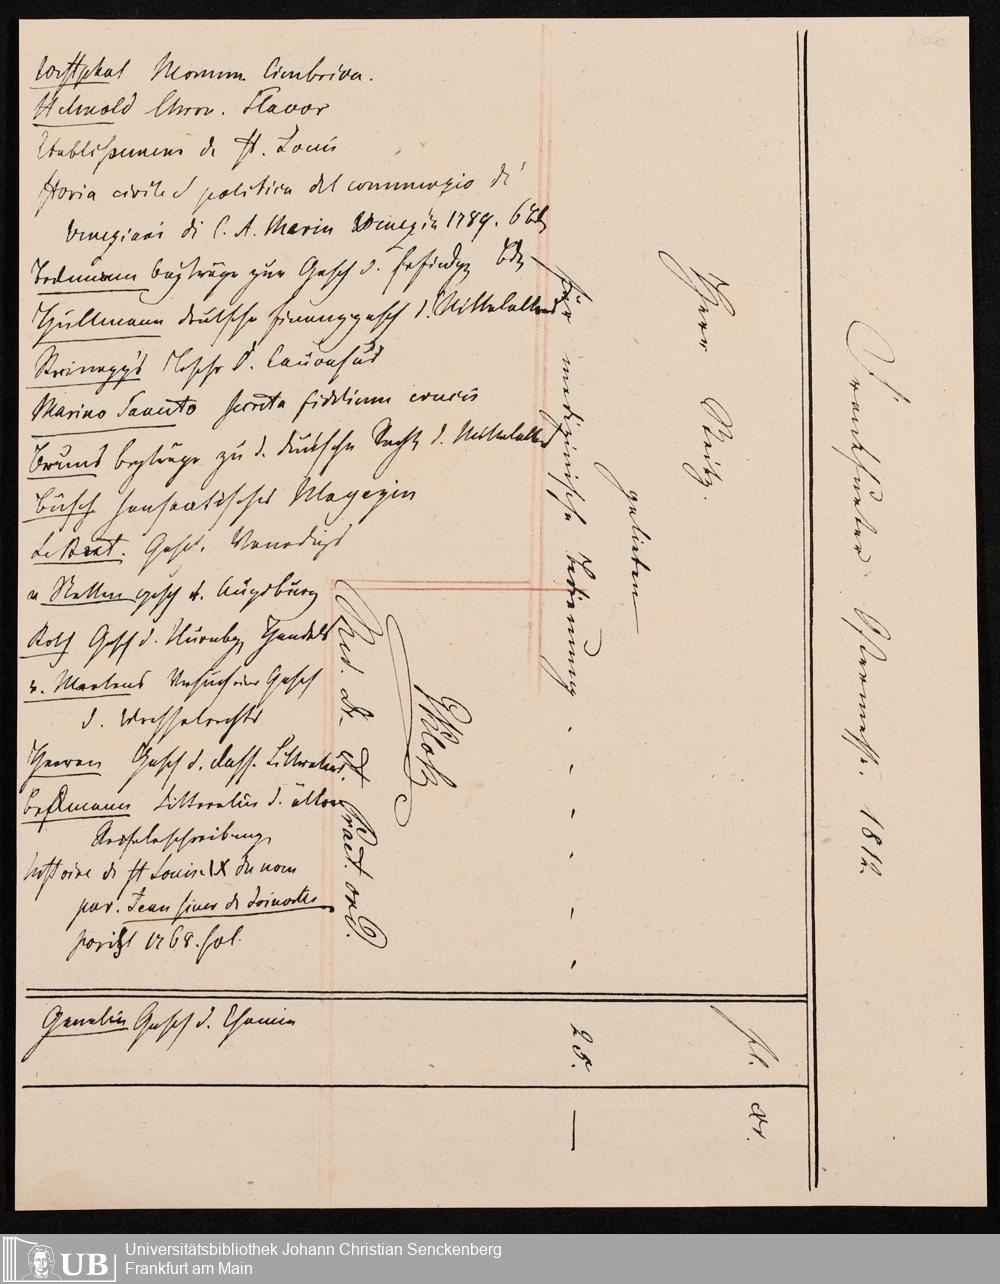 Westphal Monum Cimbrica.
Helmold Chron. Slavor
Etablissemens de St. Louis
Storia civile e politica del commerzio di
Veneziani di C. A. Marin Venezia 1789. 6 Bd
Bodmann beyträge zur Gesch d.
Hüllmann deutsche Finanzgesch d. Mittelalters
Reineggs Beschr d. Caucasus
Marino Sanuto secreta fidelium crucis
Bruns beyträge zu d. deutschen Recht d. Mittelalters
Büsch hanseatisches Magazin
Le Bret. Gesch. Venedigs
v Stetten gesch v. Augsburg
Roth Gesch d. Nürnbg Handels
v. Martens Versuch einer Gesch
d. Wechselrechts
Heeren Gesch d. class. Litteratur.
Beckmann Litteratur d. ältern
Reisebeschreibung
histoire de St Louis IX du nom
par. Jean Sieur de Joinville
paris 1768. fol.
Gmelin Gesch d. Chemie
Frankfurter Ostermesse. 1812.
Herr Reitz.
gelieben
fl. xr.
für medizinische Bedienung 25. —
Klotz
Med. Dr. et Pract. ord.
Universitätsbibliothek Johann Christian Senckenberg
Frankfurt am Main
UB